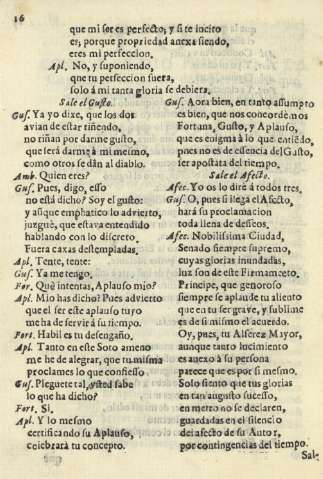 16
que mi ser es perfecto; y si te incito
es; porque propriedad anexa siendo,
eres mi perfeccion.
Apl. No, y suponiendo,
que tu perfeccion fuera,
solo á mi tanta gloria se debiera.
Sale el Gusto.
Gus. Ya yo dixe, que los dos
avian de estar riñendo,
no riñan por darme gusto,
que será darme à mi mesmo,
como otros se dàn al diablo.
Amb. Quien eres?
Gus. Pues, digo, esso
no está dicho? Soy el gusto:
y aũque emphatico lo advierto,
juzguè, que estava entendido
hablando con lo discreto.
Fuera caxas destempladas.
Apl. Tente, tente:
Gus. Ya me tengo.
For. Què intentas, Aplauso mio?
Apl. Mio has dicho? Pues advierto
que el ser este aplauso tuyo
me ha de servir à su tiempo.
Fort. Habil es tu desengaño.
Apl. Tanto en este Soto ameno
me hè de alegrar, que tu misma
proclames lo que confiesso.
Gus. Plegue tal, usted sabe
lo que ha dicho?
Fort. Si,
Apl. Y lo mesmo
certificando su Aplauso,
celebrarà tu concepto.
Gus. Aora bien, en tanto assumpto
es bien, que nos concordèmos
Fortuna, Gusto, y Aplauso,
que es enigma à lo que entiẽdo,
pues no es de essencia del Gusto,
ser apostata del tiempo.
Sale el Afecto.
Afec. Yo os lo dirè à todos tres.
Gus. O, pues si llega el Afecto,
hará su proclamacion
toda llena de desseos.
Afec. Nobilissima Ciudad,
Senado siempre supremo,
cuyas glorias inundadas,
luz son de este Firmamẽto.
Principe, que generoso
siempre se aplaude tu aliento
que en tu ser grave, y sublime
es de si mismo el acuerdo.
Oy, pues, tu Alferez Mayor,
aunque tanto lucimiento
es anexo à su persona
parece que es por si mesmo.
Solo siento que tus glorias
en tan augusto sucesso,
en metro no se declaren,
guardadas en el silencio
del afecto de su Autor,
por contingencias del tiempo.
Sale